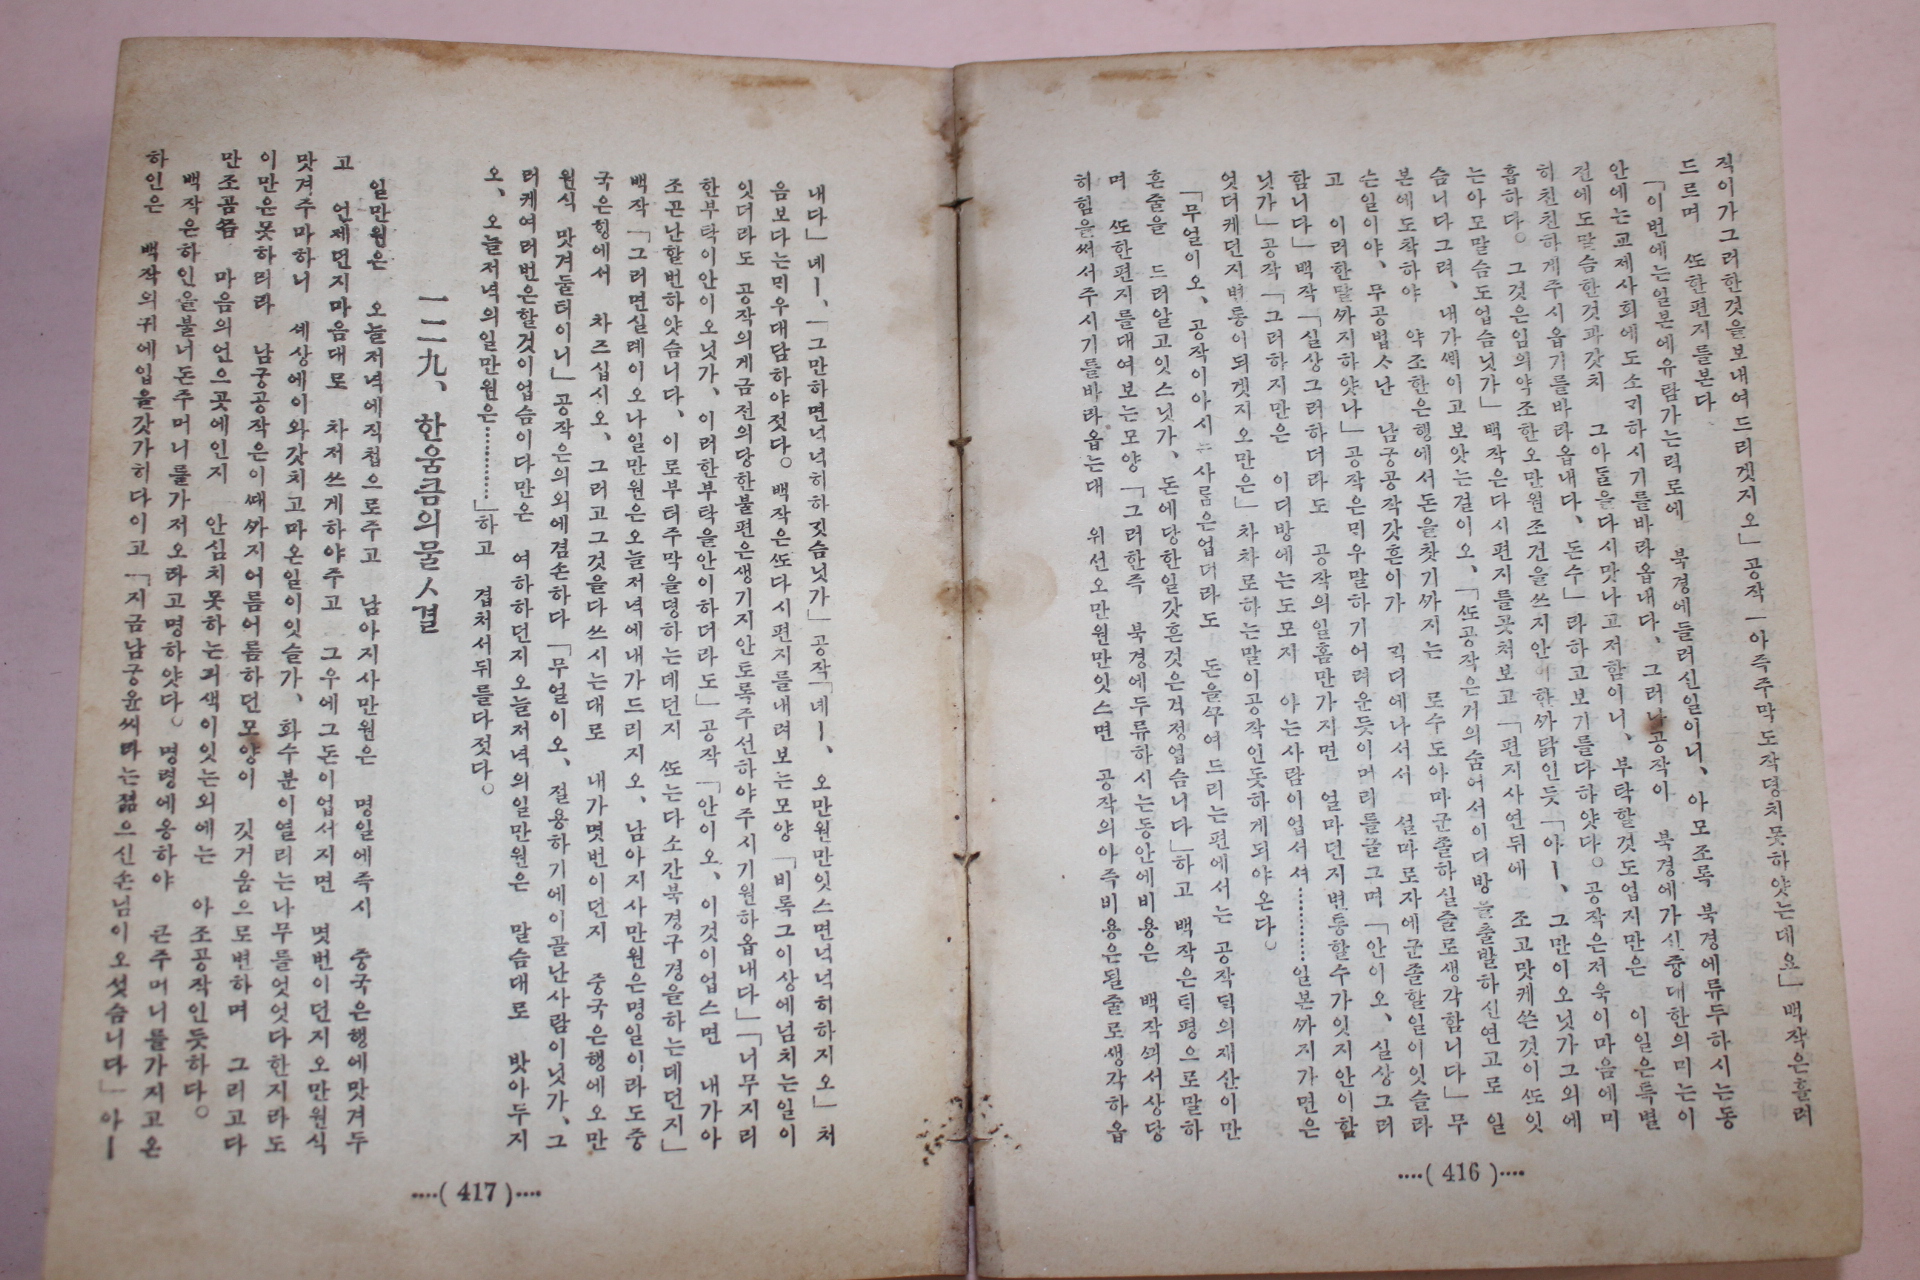 직이가그러한것을보내여드리겟지오」공작「아즉주막도작뎡치못하얏는데요」백작은흘려
드르며 ᄯᅩ한편지를본다
「이번에는일본에유람가는럭로에 북경에들러신일이니、아모조록북경에류두하시는동
안에는교제사회에도소개하시기를바라옵내다、그러나공작이 북경에가신중대한의미는이
젼에도말슴한것과갓치 그아들을다시맛나고저함이니、부탁할것도업지만은 이일은특별
히친친하게주시옵기를바라옵내다、돈수」라하고보기를다하얏다。공작은저윽이마음에미
흡하다。그것은임의약조한오만원조건을쓰지안이한ᄭᅡ닭인듯「아ー、그만이오닛가그외에
는아모말슴도업슴닛가」백작은다시편지를곳쳐보고「편지사연뒤에 조고맛케쓴것이ᄯᅩ잇
슴니다그려、내가ᄲᅦ이고보앗는걸이오、「ᄯᅩ공작은거의숨어서이디방을출발하신연고로 일
본에도착하야 약조한은행에서돈을찻기ᄭᅡ지는 로수도아마군졸하실줄로생각함니다」무
슨일이야、무공법ᄉ난 남궁공작갓흔이가 긱디에나서서 설마로자에군졸할일이잇슬라
고 이러한말ᄭᅡ지하얏나」공작은믜우말하기어려운듯이머리를글그며「안이오、실상그러
함니다」백작「실상그러하더라도 공작의일홈만가지면 얼마던지변통할수가잇지안이함
닛가」공작「그러하지만은 이디방에는도모지 아는사람이업서셔…………일본ᄭᅡ지가면은
엇더케던지변통이되겟지오만은」차차로하는말이공작인돗하게되야온다。
「무얼이오、공작이아시는사름은업더라도 돈을ᄭᅮ여드리는편에서는 공작덕의재산이만
흔줄을 드러알고잇스닛가、돈에당한일갓흔것은걱정업슴니다」하고 백작은태평으로말하
며 ᄯᅩ한편지를대여보는모양「그러한즉 북경에두류하시는동안에비용은 백작ᄭᅴ서상당
히힘을써서주시기를바라옵는대 위선오만원만잇스면 공작의아즉비용은될줄로생각하옵
····( 416 )····
내다」네ー、「그만하면넉넉히하깃슴닛가」공작「네ー、오만원만잇스면넉넉히하지오」처
음보다는믜우대담하야젓다。백작은ᄯᅩ다시편지를내려보는모양「비록그이상에넘치는일이
잇더라도 공작의게금전의당한불편은생기지안토록주선하야주시기원하옵내다」「너무지리
한부탁이안이오닛가、이러한부탁을안이하더라도」공작「안이오、이것이업스면 내가아
조끈난할번하얏슴니다、이로부터주막을뎡하는데던지 ᄯᅩ는다소간북경구경을하는데던지」
백작「그러면실례이오나일만원은오늘저녁에내가드리지오、남아지사만원은명일이라도중
국은힝에서 차즈십시오、그러고그것을다쓰시는대로 내가몃번이던지 중국은행에오만
원식 맛겨둘터이니」공작은의외에겸손하다「무얼이오、절용하기에이골난사람이닛가、그
러케여러번은할것이업슴이다만은 여하하던지오늘저녁의일만원은 말슴대로 밧아두지
오、오늘저녁의일만원은…………」하고 겹처서뒤를다젓다。
一二九、한움큼의물ᄉ결
일만원은 오늘저녁에직접으로주고 남아지사만원은 명일에즉시 중국은행에맛겨두
고 언제던지마음대로 차저쓰게하야주고 그우에그돈이업서지면 몃번이던지오만원식
맛겨주마하니 세상에이와갓치고마온일이잇슬가、화수분이열리는나무들엇엇다한지라도
이만은못하리라 남궁공작은이ᄯᅢᄭᅡ지어름어름하던모양이 깃거움으로변하며 그리고다
만조곰ᄶᅳᆷ 마음의언으곳에인지 안심치못하는긔색이잇는외에는 아조공작인듯하다。
백작은하인을불너돈주머니를가저오라고명하얏다。명령에응하야 큰주머니를가지고온
하인은 백작의귀에입을갓가히다이고「지금남궁윤씨라는졂으신손님이오섯슴니다」아ー
····( 417 )····